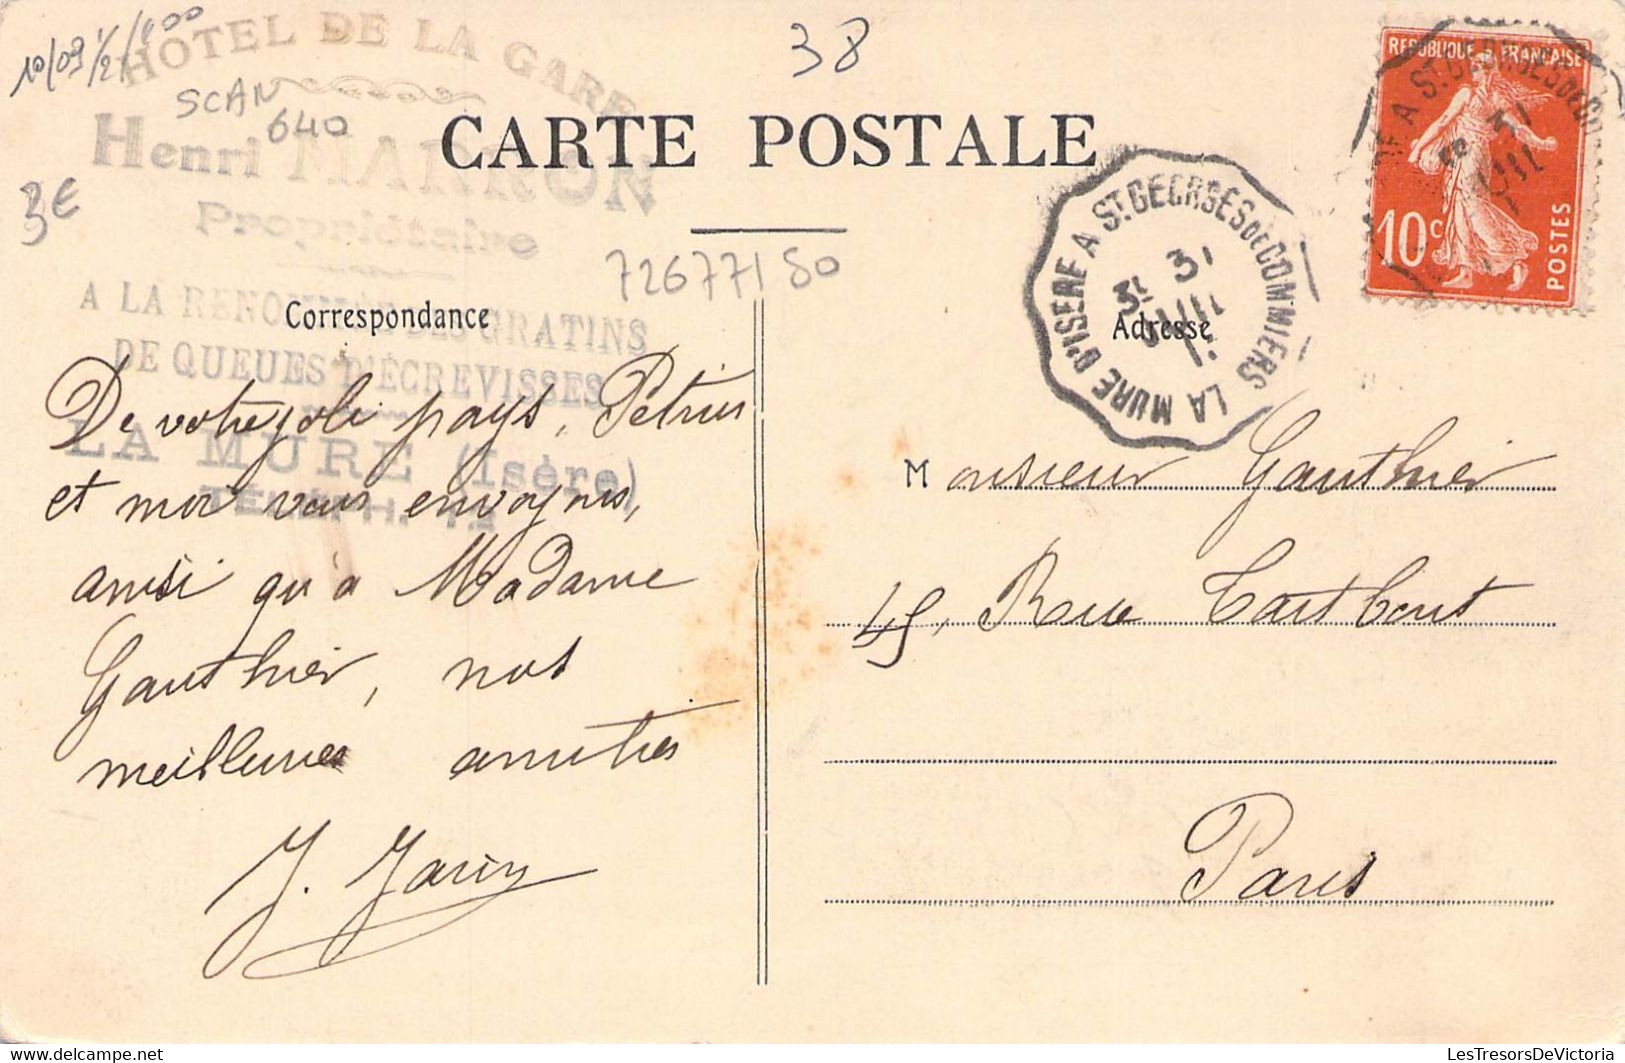 10/09/21/000
38
REPUBLIQUE FRANCAISE
10c
POSTES
HOTEL DE LA GARE
SCAN
640
Henri MARRON
Propriétaire
3€
CARTE POSTALE
72677180
A LA RENOMMÉE DES GRATINS
DE QUEUES D'ÉCREVISSES
LA MURE (Isère)
TÉLÉPH.
Correspondance
Adresse
LA MURE D'ISERE A ST GEORGES DE COMMIERS
31
VIII
A ST GEORGES DE
31
VIII
De votre joli pays, Pétrus
et moi vous envoyons,
ainsi qu'à Madame
Gauthier, nos
meilleures amitiés
Monsieur Gauthier
45, Rue Taitbout
Paris
LesTresorsDeVictoria.com
LesTresorsDeVictoria